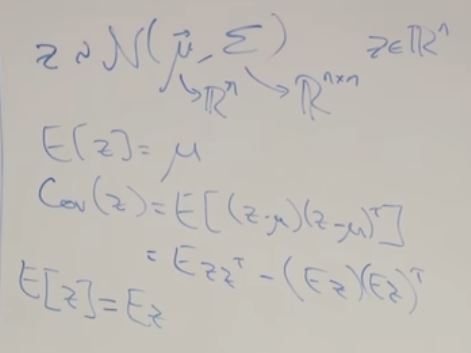 z ~ N(μ⃗, Σ)    z ∈ ℝⁿ
↳ ℝⁿ ↘ ℝⁿˣⁿ
E[z] = μ
Cov(z) = E[(z-μ)(z-μ)ᵀ]
= Ezzᵀ - (Ez)(Ez)ᵀ
E[z] = Ez